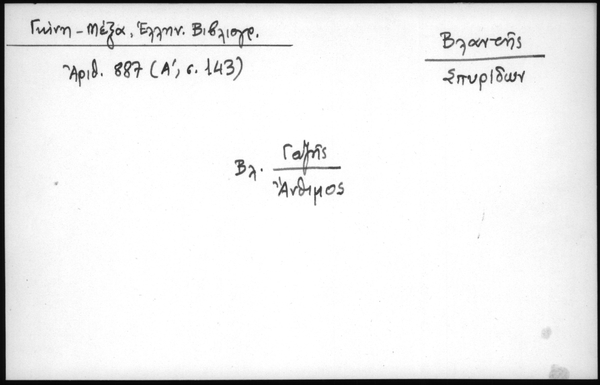 Γκίνη - Μέξα, Ἑλλην. Βιβλιογρ.
Ἀριθ. 887 (Α', σ. 143)
Βλαντῆς
Σπυρίδων
Βλ. Γαζῆς
Ἄνθιμος